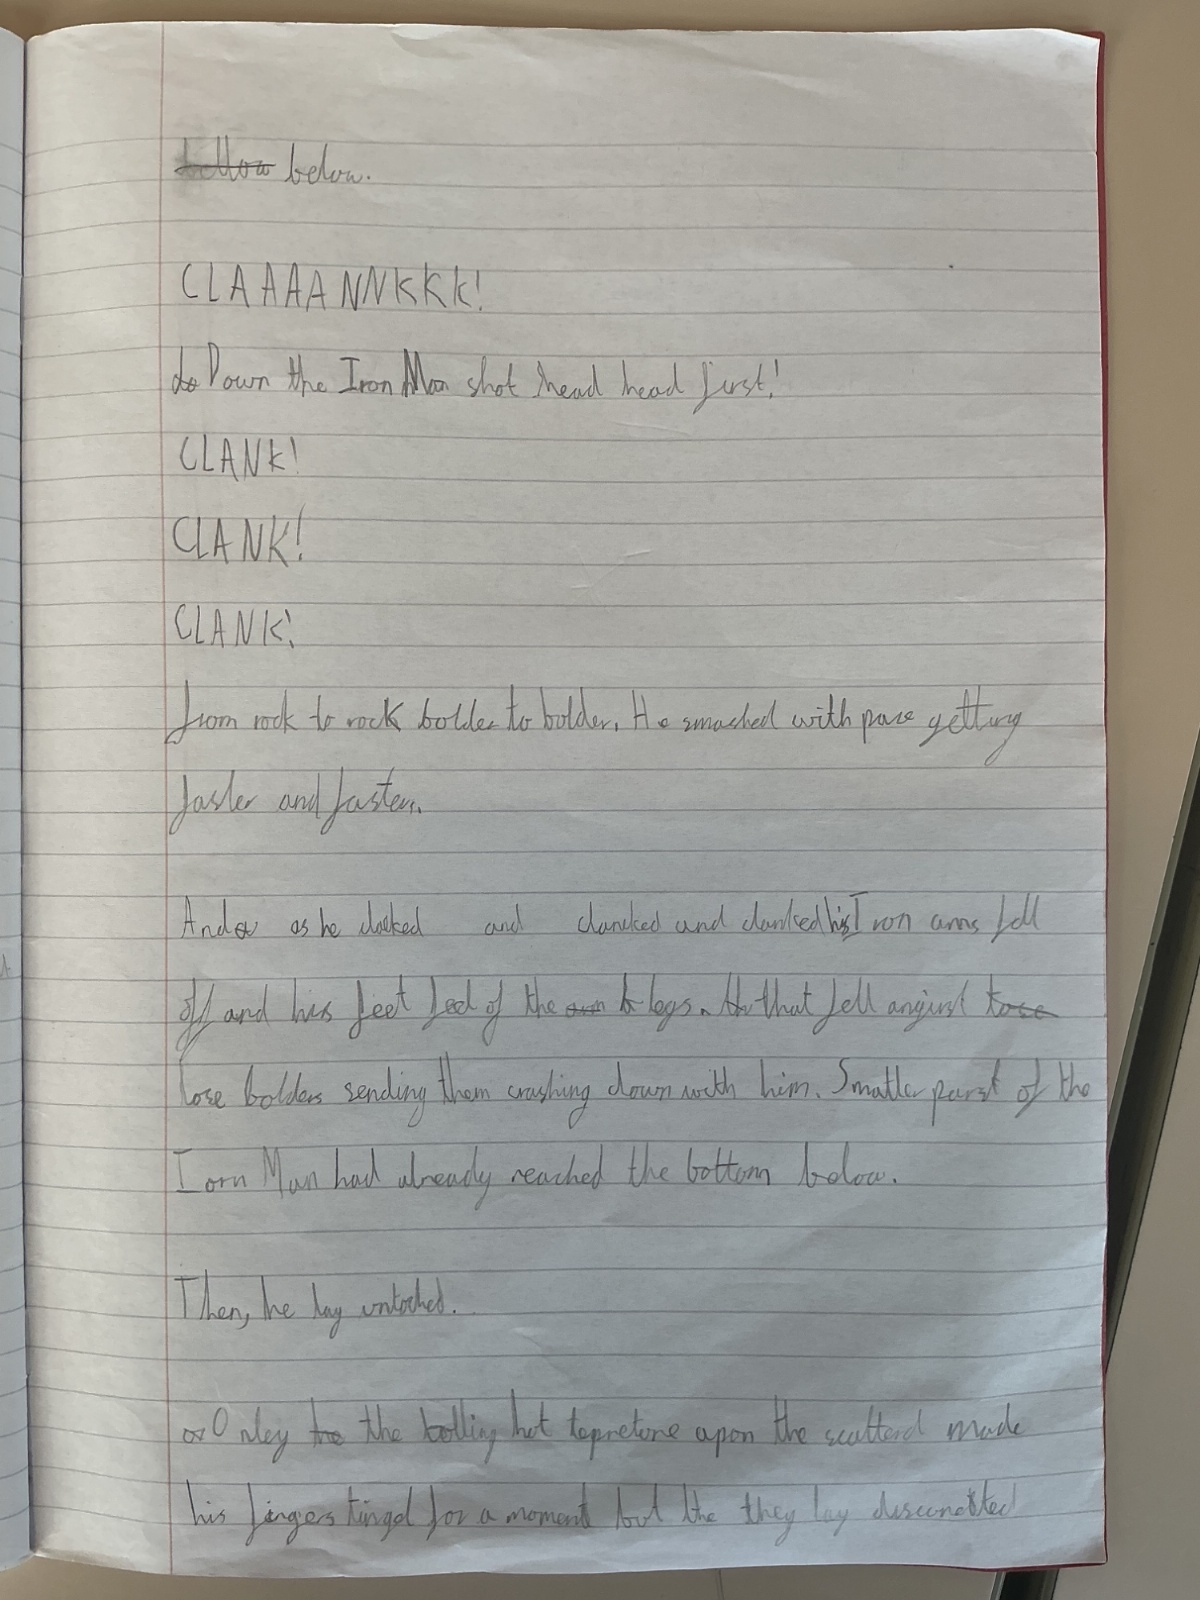 bellow below.
CLAAAANNKKK!
do Down the Iron Man shot head head first!
CLANK!
CLANK!
CLANK!
from rock to rock bolder to bolder. He smached with pace getting
faster and faster.
And as he clacked and clancked and clanked his Iron arms fell
off and his feet feel of the arm legs. that fell anginst
lose bolders sending them crashing down with him. Smatler parst of the
Iorn Man had already reached the bottom below.
Then, he lay untoched.
Onley the the bolling hot tepreture apon the scatterd made
his fingers tingel for a moment but the they lay disconected